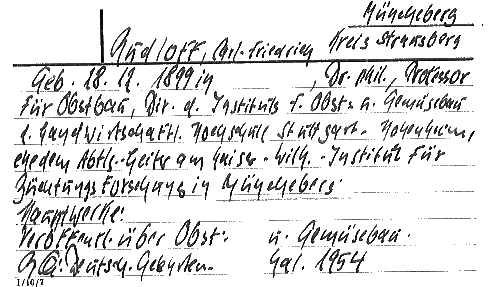 Müncheberg
Rudloff, Carl-Friedrich Kreis Strausberg
Geb. 28. 12. 1899 in , Dr. phil., Professor
für Obstbau, Dir. d. Instituts f. Obst- u. Gemüsebau
d. Landwirtschaftl. Hochschule Stuttgart-Hohenheim,
ehedem Abtlg.-Leiter am Kaiser-Wilh.-Institut für
Züchtungsforschung in Müncheberg.
Hauptwerke:
Veröffentl. über Obst- u. Gemüsebau.
Deutsch. Gelehrten- Kal. 1954
I/10/7